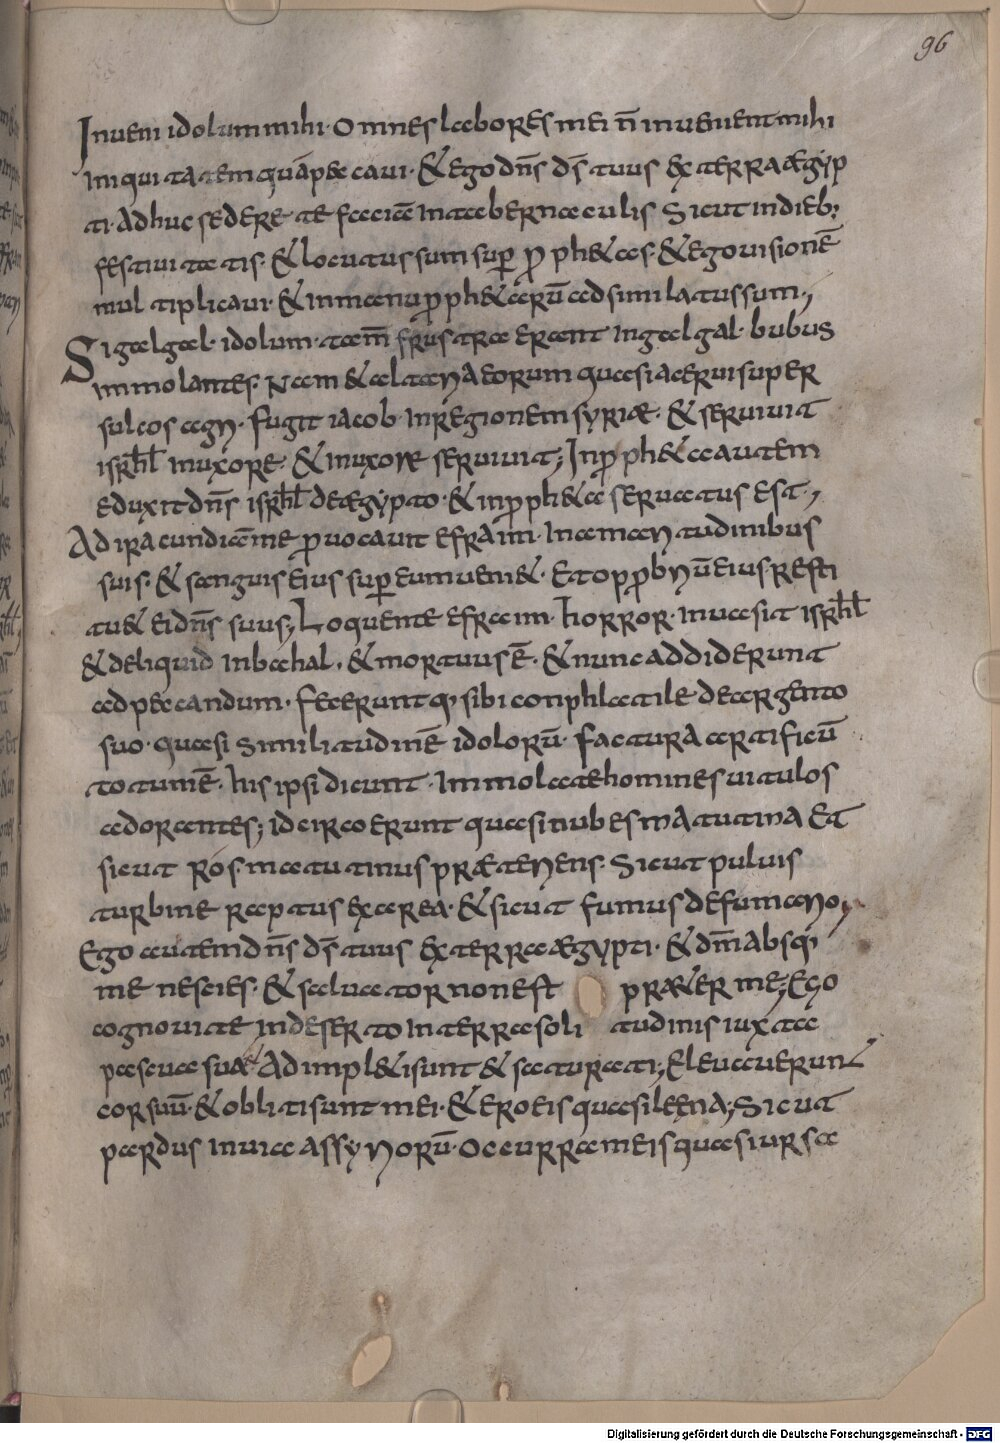 96
Inveni idolum mihi· Omnes labores mei n̄ invenient mihi
iniquitatem quā peccavi· & ego dn̄s d̄s tuus ex terra ægyp
ti· Adhuc sedere te faciā in tabernaculis Sicut in dieb;
festivitatis· & locutus sum sup̄ p̄ph&as· & ego visionē
multiplicavi· & in manu p̄ph&arū adsimilatus sum·,
Si galgal· idolum· tam̄ frustra erant In galgal· bubus
immolantes· Nam & altaria eorum quasi acervi super
sulcos agri· fugit iacob In regionem syriæ· & servivit
isrhl in uxore· & in uxore servivit; In p̄ph&a autem
eduxit dn̄s isrhl de ægypto· & in p̄ph&a servatus est·,
Ad iracundiā me p̄vocavit efraim· In amaritudinibus
suis· & sanguis eius sup̄ eum veni&· Et opp̄briū eius resti
tu& ei dn̄s suus; Loquente efraim· horror· invasit isrhl
& deliquid in bahal· & mortuus ē· & nunc addiderunt
ad peccandum· feceruntq; sibi conphlatile de argento
suo· quasi similitudinē idolorū· factura artificū
totum ē· his ipsi dicunt· Immolate homines vitulos
adorantes; idcirco erunt quasi nubes matutina Et
sicut ros· matutinus præteriens· Sicut pulvis
turbine raptus ex area· & sicut fumus de fumario,
Ego autem dn̄s d̄s tuus ex terra ægypti· & dm̄ absq;
me nescies· & salvator non est præter me; Ego
cognovi te in deserto In terra soli tudinis iuxta
pascua sua Ad impl&i sunt & saturati; Elevaverunt
cor suū· & obliti sunt mei· & ero eis quasi leęna; Sicut
pardus In via assyriorū· Occurram eis quasi ursa
Digitalisierung gefördert durch die Deutsche Forschungsgemeinschaft - DFG